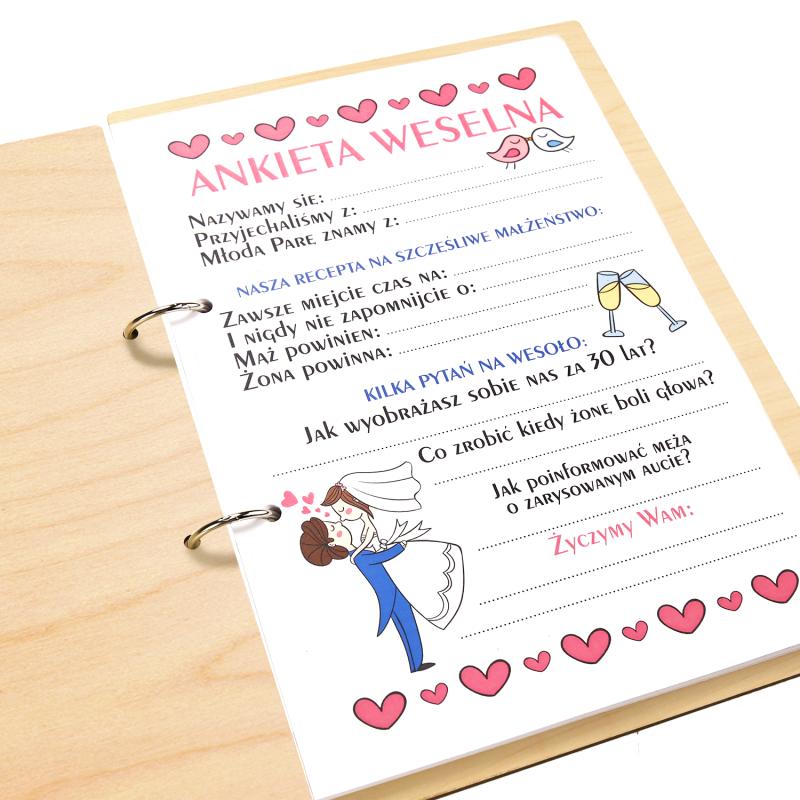 ANKIETA WESELNA
Nazywamy się:
Przyjechaliśmy z:
Młodą Parę znamy z:
NASZA RECEPTA NA SZCZĘŚLIWE MAŁŻEŃSTWO:
Zawsze miejcie czas na:
I nigdy nie zapomnijcie o:
Mąż powinien:
Żona powinna:
KILKA PYTAŃ NA WESOŁO:
Jak wyobrażasz sobie nas za 30 lat?
Co zrobić kiedy żonę boli głowa?
Jak poinformować męża
o zarysowanym aucie?
Życzymy Wam: